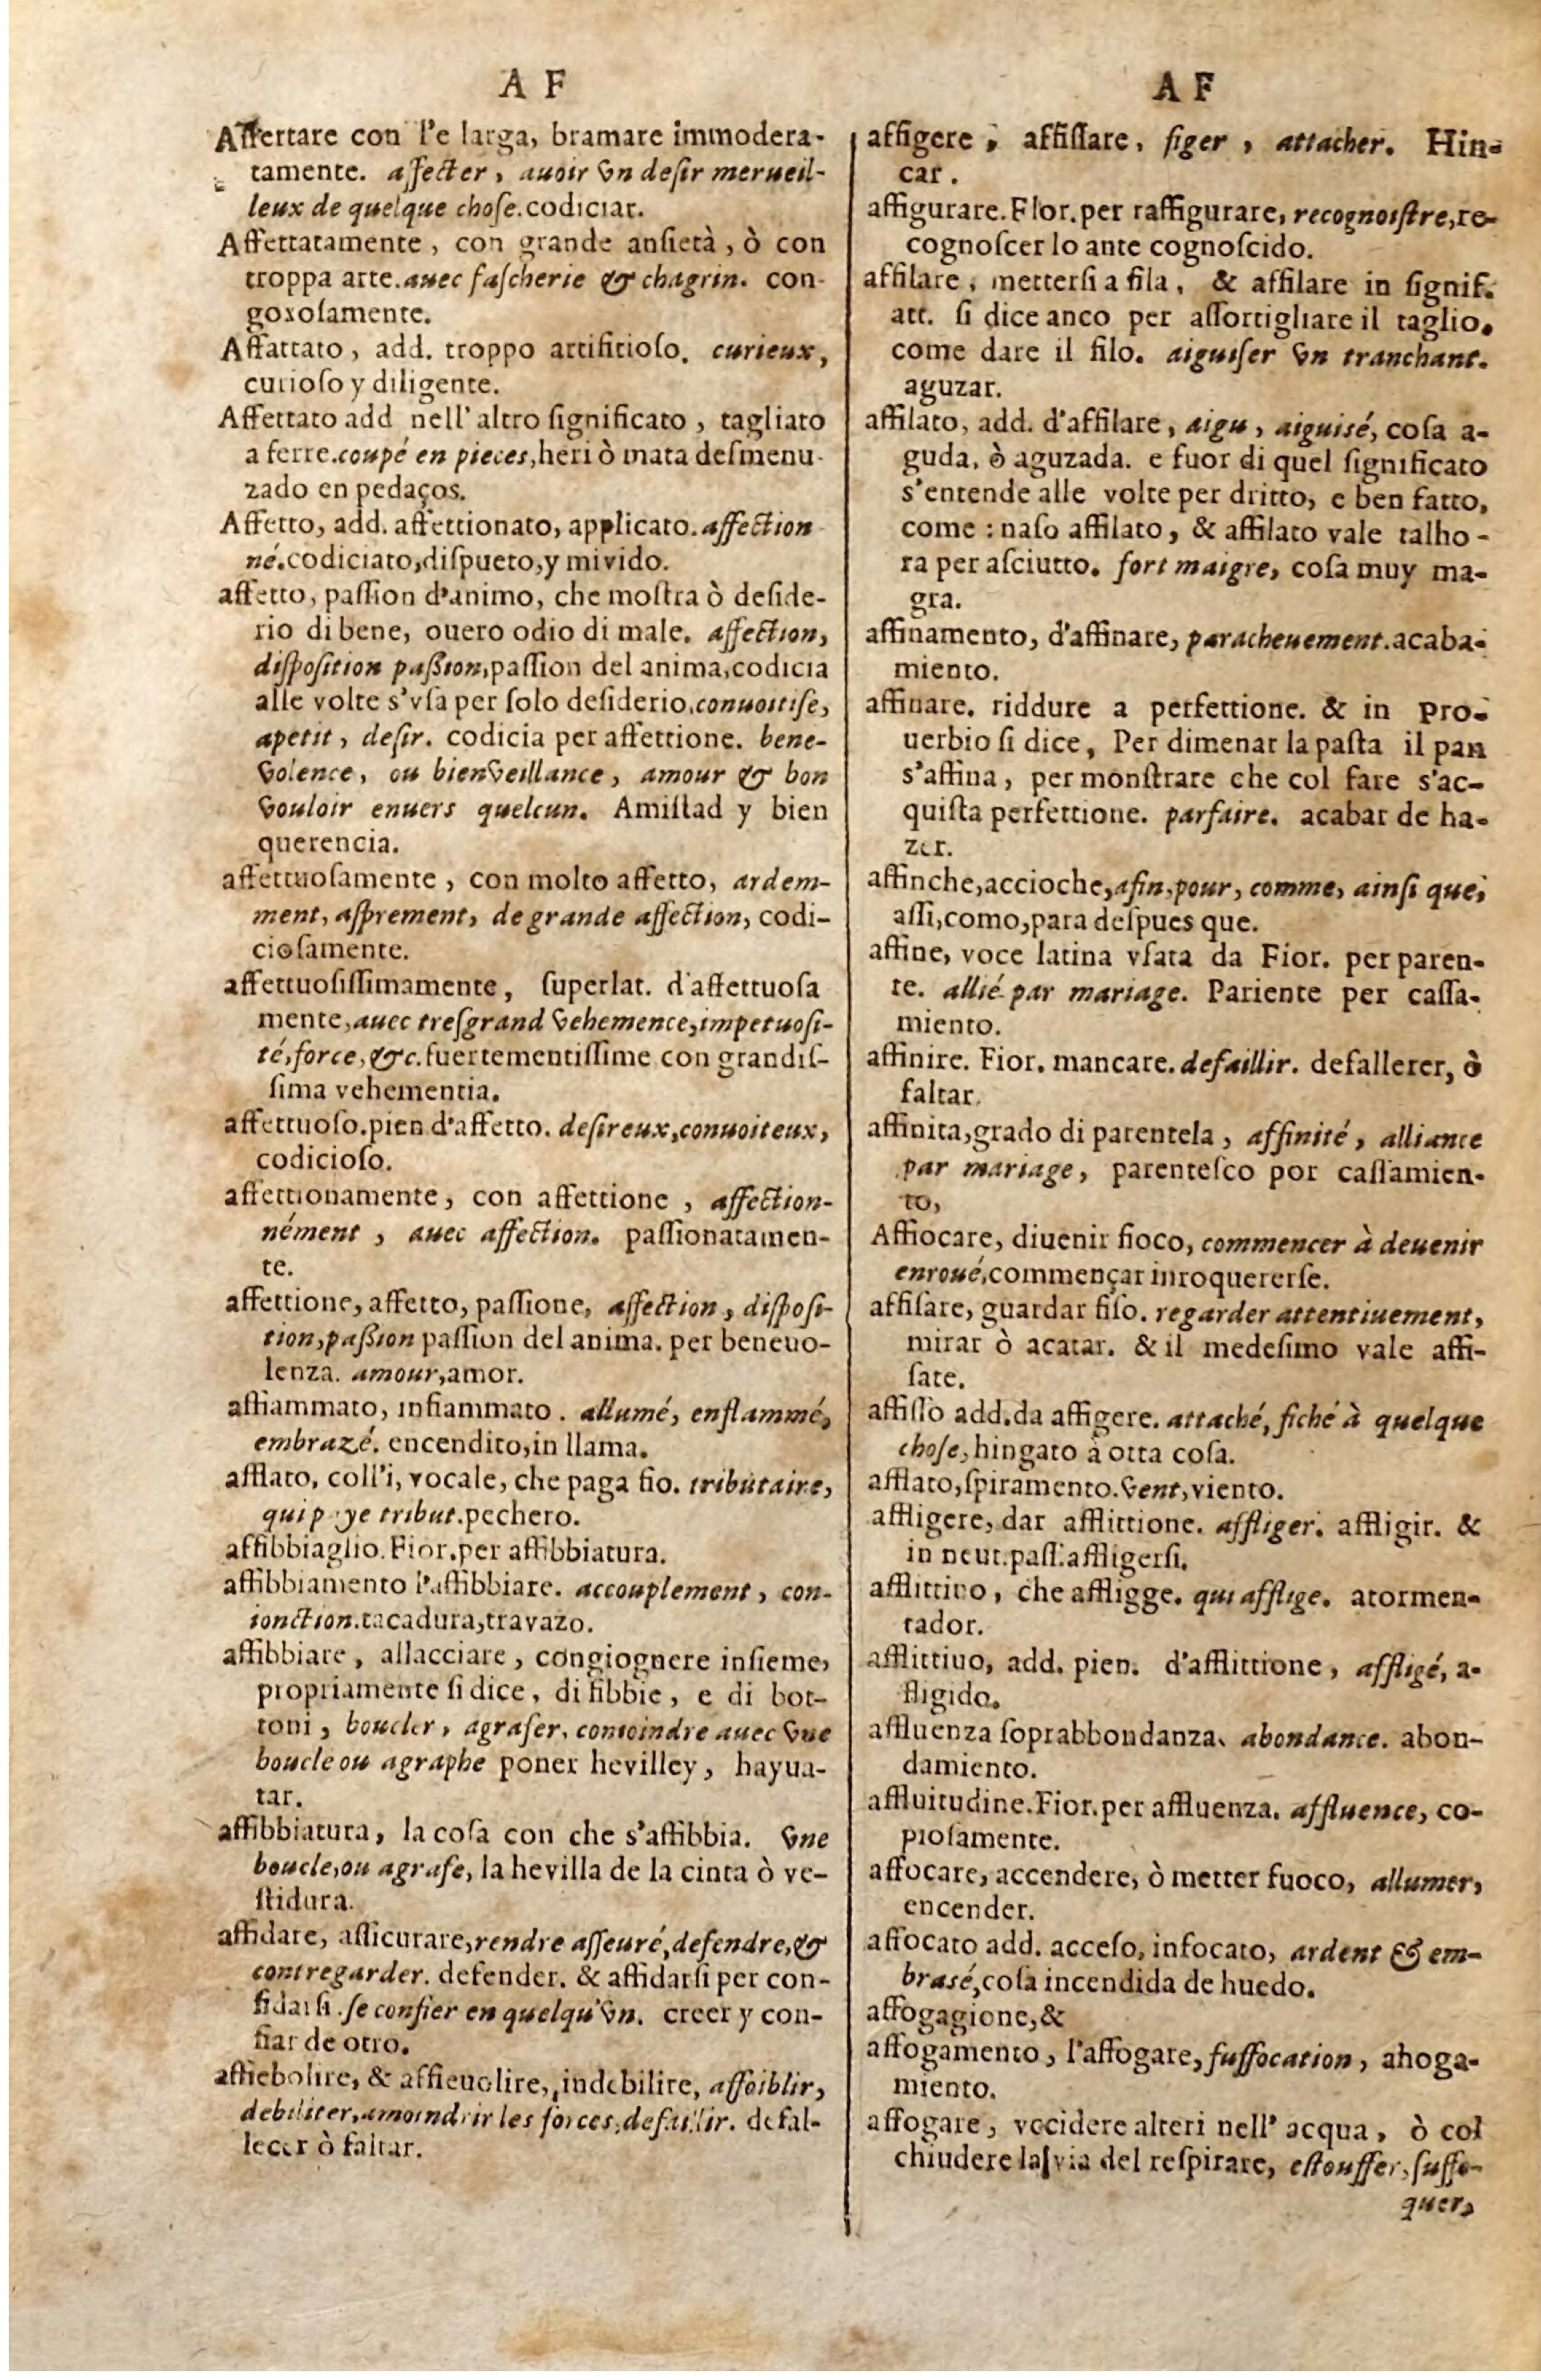 A F
Affettare con l'e larga, bramare immodera-
tamente. affecter, auoir vn desir merueil-
leux de quelque chose. codiciar.
Affettatamente, con grande ansietà, ò con
troppa arte. auec fascherie & chagrin. con-
goxosamente.
Affattato, add. troppo artifitioso. curieux,
curioso y diligente.
Affettato add nell' altro significato, tagliato
a ferre. coupé en pieces, heri ò mata desmenu-
zado en pedaços.
Affetto, add. affettionato, applicato. affection
né. codiciato, dispueto, y mivido.
affetto, passion d'animo, che mostra ò deside-
rio di bene, ouero odio di male. affection,
disposition passion, passion del anima, codicia
alle volte s'vsa per solo desiderio. conuoitise,
apetit, desir. codicia per affettione. bene-
volence, ou bienveillance, amour & bon
vouloir enuers quelcun. Amistad y bien
querencia.
affettuosamente, con molto affetto, ardem-
ment, asprement, de grande affection, codi-
ciosamente.
affettuosissimamente, superlat. d'affettuosa
mente, auec tresgrand vehemence, impetuosi-
té, force, &c. fuertementissime con grandis-
sima vehementia.
affettuoso. pien d'affetto. desireux, conuoiteux,
codicioso.
affettionamente, con affettione, affection-
nément, auec affection. passionatamen-
te.
affettione, affetto, passione, affection, disposi-
tion, passion passion del anima. per beneuo-
lenza. amour, amor.
affiammato, infiammato. allumé, enflammé,
embrazé. encendito, in llama.
afflato, coll'i, vocale, che paga fio. tributaire,
qui p ye tribut. pechero.
affibbiaglio. Fior. per affibbiatura.
affibbiamento l'affibbiare. accouplement, con-
ionction. tacadura, travazo.
affibbiare, allacciare, congiognere insieme,
propriamente si dice, di fibbie, e di bot-
toni, boucler, agrafer, conioindre auec vne
boucle ou agraphe poner hevilley, hayua-
tar.
affibbiatura, la cosa con che s'affibbia. vne
boucle, ou agrafe, la hevilla de la cinta ò ve-
stidura.
affidare, assicurare, rendre asseuré, defendre, &
contregarder. defender. & affidarsi per con-
fidarsi. se confier en quelqu'vn. creer y con-
fiar de otro.
affiebolire, & affieuolire, indebilire, affoiblir,
debiliter, amoindrir les forces, defaillir. defal-
lecer ò faltar.
A F
affigere, affissare, figer, attacher. Hin-
car.
affigurare. Flor. per raffigurare, recognoistre, re-
cognoscer lo ante cognoscido.
affilare, mettersi a fila, & affilare in signif.
att. si dice anco per assottigliare il taglio.
come dare il filo. aiguiser vn tranchant.
aguzar.
affilato, add. d'affilare, aigu, aiguisé, cosa a-
guda, ò aguzada. e fuor di quel significato
s'entende alle volte per dritto, e ben fatto,
come: naso affilato, & affilato vale talho-
ra per asciutto. fort maigre, cosa muy ma-
gra.
affinamento, d'affinare, paracheuement. acaba-
miento.
affinare. riddure a perfettione. & in pro-
uerbio si dice, Per dimenar la pasta il pan
s'affina, per monstrare che col fare s'ac-
quista perfettione. parfaire. acabar de ha-
zer.
affinche, accioche, afin, pour, comme, ainsi que,
assi, como, para despues que.
affine, voce latina vsata da Fior. per paren-
te. allié par mariage. Pariente per cassa-
miento.
affinire. Fior. mancare. defaillir. defallerer, ò
faltar.
affinita, grado di parentela, affinité, alliance
par mariage, parentesco por cassamien-
to,
Affiocare, diuenir fioco, commencer à deuenir
enroué, commençar inroquererse.
affisare, guardar fiso. regarder attentiuement,
mirar ò acatar. & il medesimo vale affi-
sate.
affisso add. da affigere. attaché, fiché à quelque
chose, hingato à otta cosa.
afflato, spiramento. vent, viento.
affligere, dar afflittione. affliger. affligir. &
in neut. pass. affligersi.
afflittivo, che affligge. qui afflige. atormen-
tador.
afflittiuo, add. pien. d'afflittione, affligé, a-
fligido.
affluenza soprabbondanza. abondance. abon-
damiento.
affluitudine. Fior. per affluenza. affluence, co-
piosamente.
affocare, accendere, ò metter fuoco, allumer,
encender.
affocato add. acceso, infocato, ardent & em-
brasé, cosa incendida de huedo.
affogagione, &
affogamento, l'affogare, suffocation, ahoga-
miento.
affogare, vccidere alteri nell' acqua, ò col
chiudere la via del respirare, estouffer, suffo-
quer,